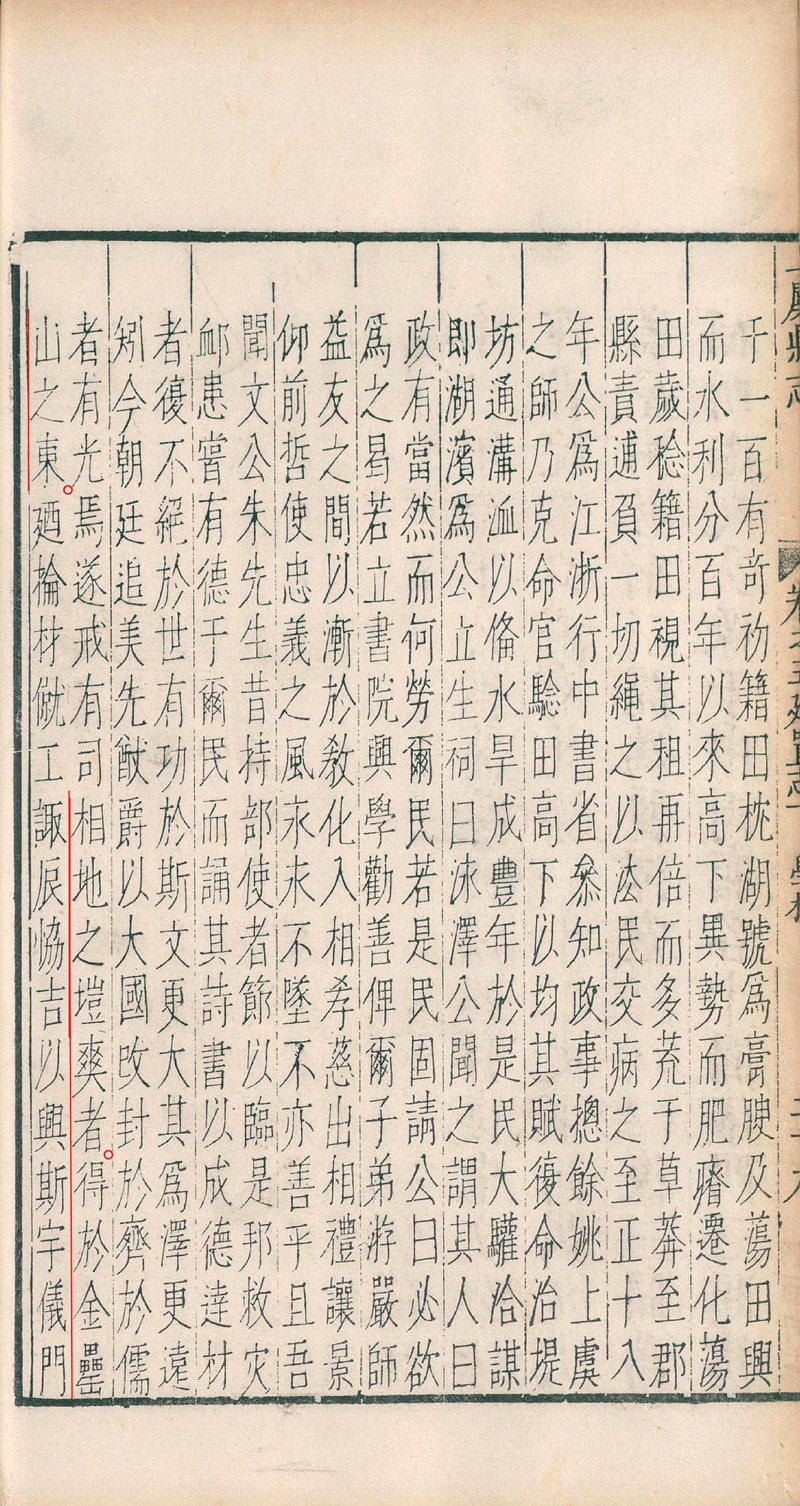 千一百有奇初籍田枕湖號爲膏腴及蕩田與
而水利分百年以來高下異勢而肥瘠遷化蕩
田歲稔籍田視其租再倍而多荒于草莽至郡
縣責逋負一切繩之以法民交病之至正十八
年公爲江浙行中書省叅知政事摠餘姚上虞
之師乃克命官驗田高下以均其賦復命治堤
坊通溝洫以俻水旱成豐年於是民大驩洽謀
即湖濱爲公立生祠曰泳澤公聞之謂其人曰
政有當然而何勞爾民若是民固請公曰必欲
爲之曷若立書院興學勸善俾爾子弟游嚴師
益友之間以漸於教化入相孝慈出相禮讓景
仰前哲使忠義之風永永不墜不亦善乎且吾
聞文公朱先生昔持部使者節以臨是邦救灾
䘏患嘗有德于爾民而誦其詩書以成德達材
者復不絕於世有功於斯文更大其爲澤更遠
矧今朝廷追美先猷爵以大國改封於齊於儒
者有光焉遂戒有司相地之塏爽者得於金罍
山之東廼掄材僦工諏辰恊吉以興斯宇儀門